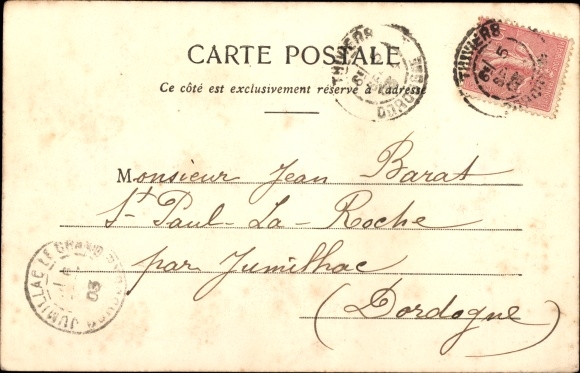 CARTE POSTALE
Ce côté est exclusivement réservé à l'adresse
THIVIERS DORDOGNE
THIVIERS
Monsieur Jean Barat
St Paul-La-Roche
par Jumilhac
(Dordogne)
JUMILLAC LE GRAND
03